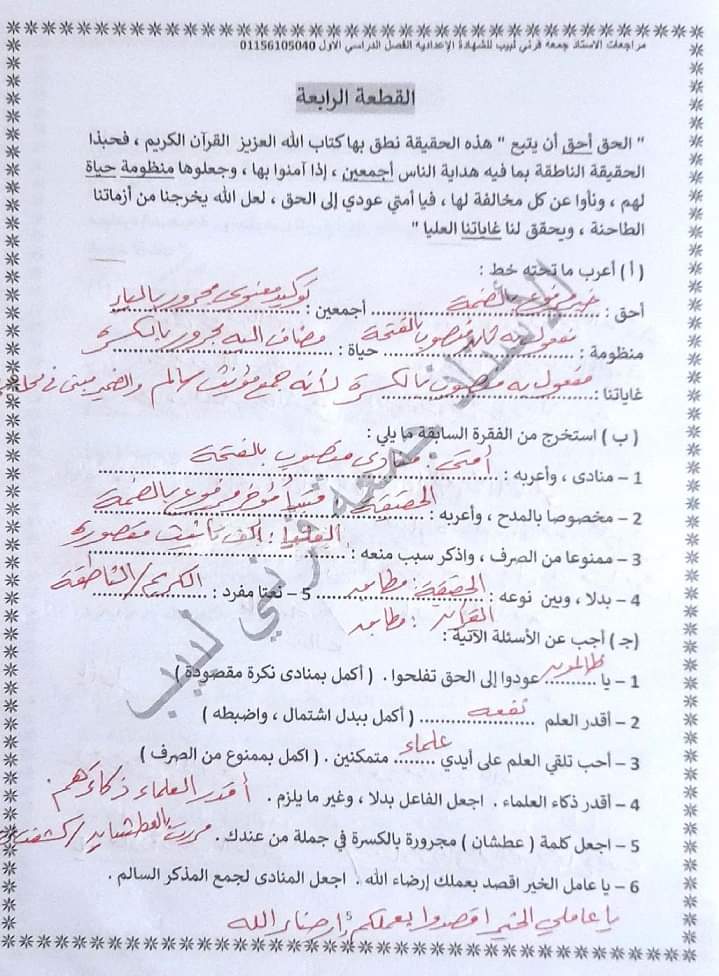 مراجعات الاستاذ جمعه قرني لبيب للشهادة الإعدادية الفصل الدراسي الأول 01156105040
القطعة الرابعة
" الحق أحق أن يتبع " هذه الحقيقة نطق بها كتاب الله العزيز القرآن الكريم ، فحبذا
الحقيقة الناطقة بما فيه هداية الناس أجمعين ، إذا آمنوا بها ، وجعلوها منظومة حياة
لهم ، ونأوا عن كل مخالفة لها ، فيا أمتي عودي إلى الحق ، لعل الله يخرجنا من أزماتنا
الطاحنة ، ويحقق لنا غاياتنا العليا "
( أ ) أعرب ما تحته خط :
أحق : خبر مرفوع بالضمة أجمعين : توكيد معنوى مجرور بالياء
منظومة : مفعول به ثان منصوب بالفتحة حياة : مضاف اليه مجرور بالكسرة
غاياتنا : مفعول به منصوب بالكسرة لأنه جمع مؤنث سالم والضمير مبنى فى محل
( ب ) استخرج من الفقرة السابقة ما يلي :
1 – منادى ، وأعربه : أمتى : منادى منصوب بالفتحة
2 – مخصوصا بالمدح ، وأعربه : الحقيقة : مبتدأ مؤخر مرفوع بالضمة
3 – ممنوعا من الصرف ، واذكر سبب منعه : العليا : ألف تأنيث مقصورة
4 – بدلا ، وبين نوعه : الحقيقة : مطابق 5 – نعتا مفرد : الكريم / الناطقة
القرآن : مطابق
( جـ ) أجب عن الأسئلة الآتية :
1 – يا ظالمون عودوا إلى الحق تفلحوا . ( أكمل بمنادى نكرة مقصودة )
2 – أقدر العلم نفعه ( أكمل ببدل اشتمال ، واضبطه )
3 – أحب تلقي العلم على أيدي علماء متمكنين . ( اكمل بممنوع من الصرف )
4 – أقدر ذكاء العلماء . اجعل الفاعل بدلا ، وغير ما يلزم . أقدر العلماء ذكاءهم .
5 – اجعل كلمة ( عطشان ) مجرورة بالكسرة في جملة من عندك . مررت بالعطشان /
6 – يا عامل الخير اقصد بعملك إرضاء الله . اجعل المنادى لجمع المذكر السالم .
يا عاملي الخير اقصدوا بعملكم إرضاء الله
5
الأستاذ جمعه قرني لبيب